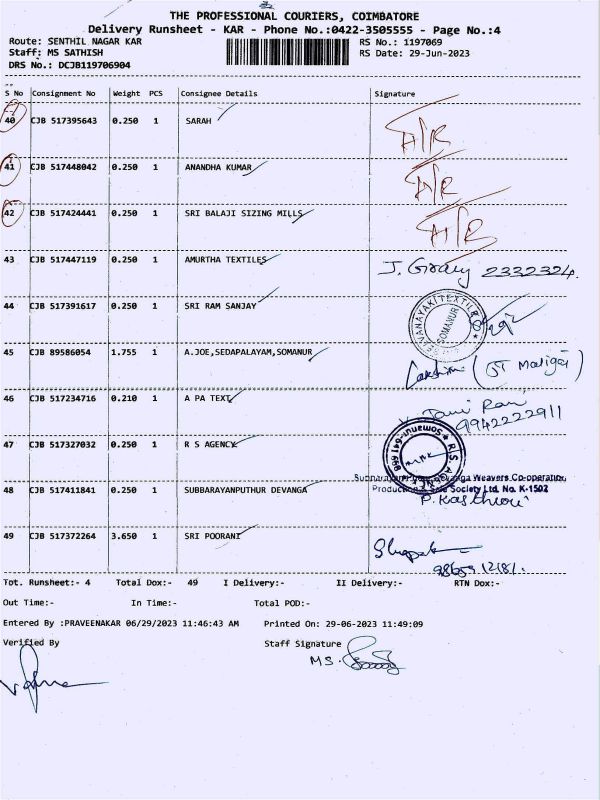 THE PROFESSIONAL COURIERS, COIMBATORE
Delivery Runsheet - KAR - Phone No.:0422-3505555 - Page No.:4
Route: SENTHIL NAGAR KAR RS No.: 1197069
Staff: MS SATHISH RS Date: 29-Jun-2023
DRS No.: DCJB119706904
S No Consignment No Weight PCS Consignee Details Signature
40 CJB 517395643 0.250 1 SARAH A/R
41 CJB 517448042 0.250 1 ANANDHA KUMAR A/R
42 CJB 517424441 0.250 1 SRI BALAJI SIZING MILLS A/R
43 CJB 517447119 0.250 1 AMURTHA TEXTILES 2332324.
44 CJB 517391617 0.250 1 SRI RAM SANJAY
SELVANAYAKI TEXTILE
SOMANUR
45 CJB 89586054 1.755 1 A.JOE,SEDAPALAYAM,SOMANUR
46 CJB 517234716 0.210 1 A PA TEXT
9942222911
47 CJB 517327032 0.250 1 R S AGENCY
Somanur-641 668
Weavers Co-operation
48 CJB 517411841 0.250 1 SUBBARAYANPUTHUR DEVANGA
Society Ltd. No. K-1502
49 CJB 517372264 3.650 1 SRI POORANI
Tot. Runsheet:- 4 Total Dox:- 49 I Delivery:- II Delivery:- RTN Dox:-
Out Time:- In Time:- Total POD:-
Entered By :PRAVEENAKAR 06/29/2023 11:46:43 AM Printed On: 29-06-2023 11:49:09
Verified By Staff Signature
MS.